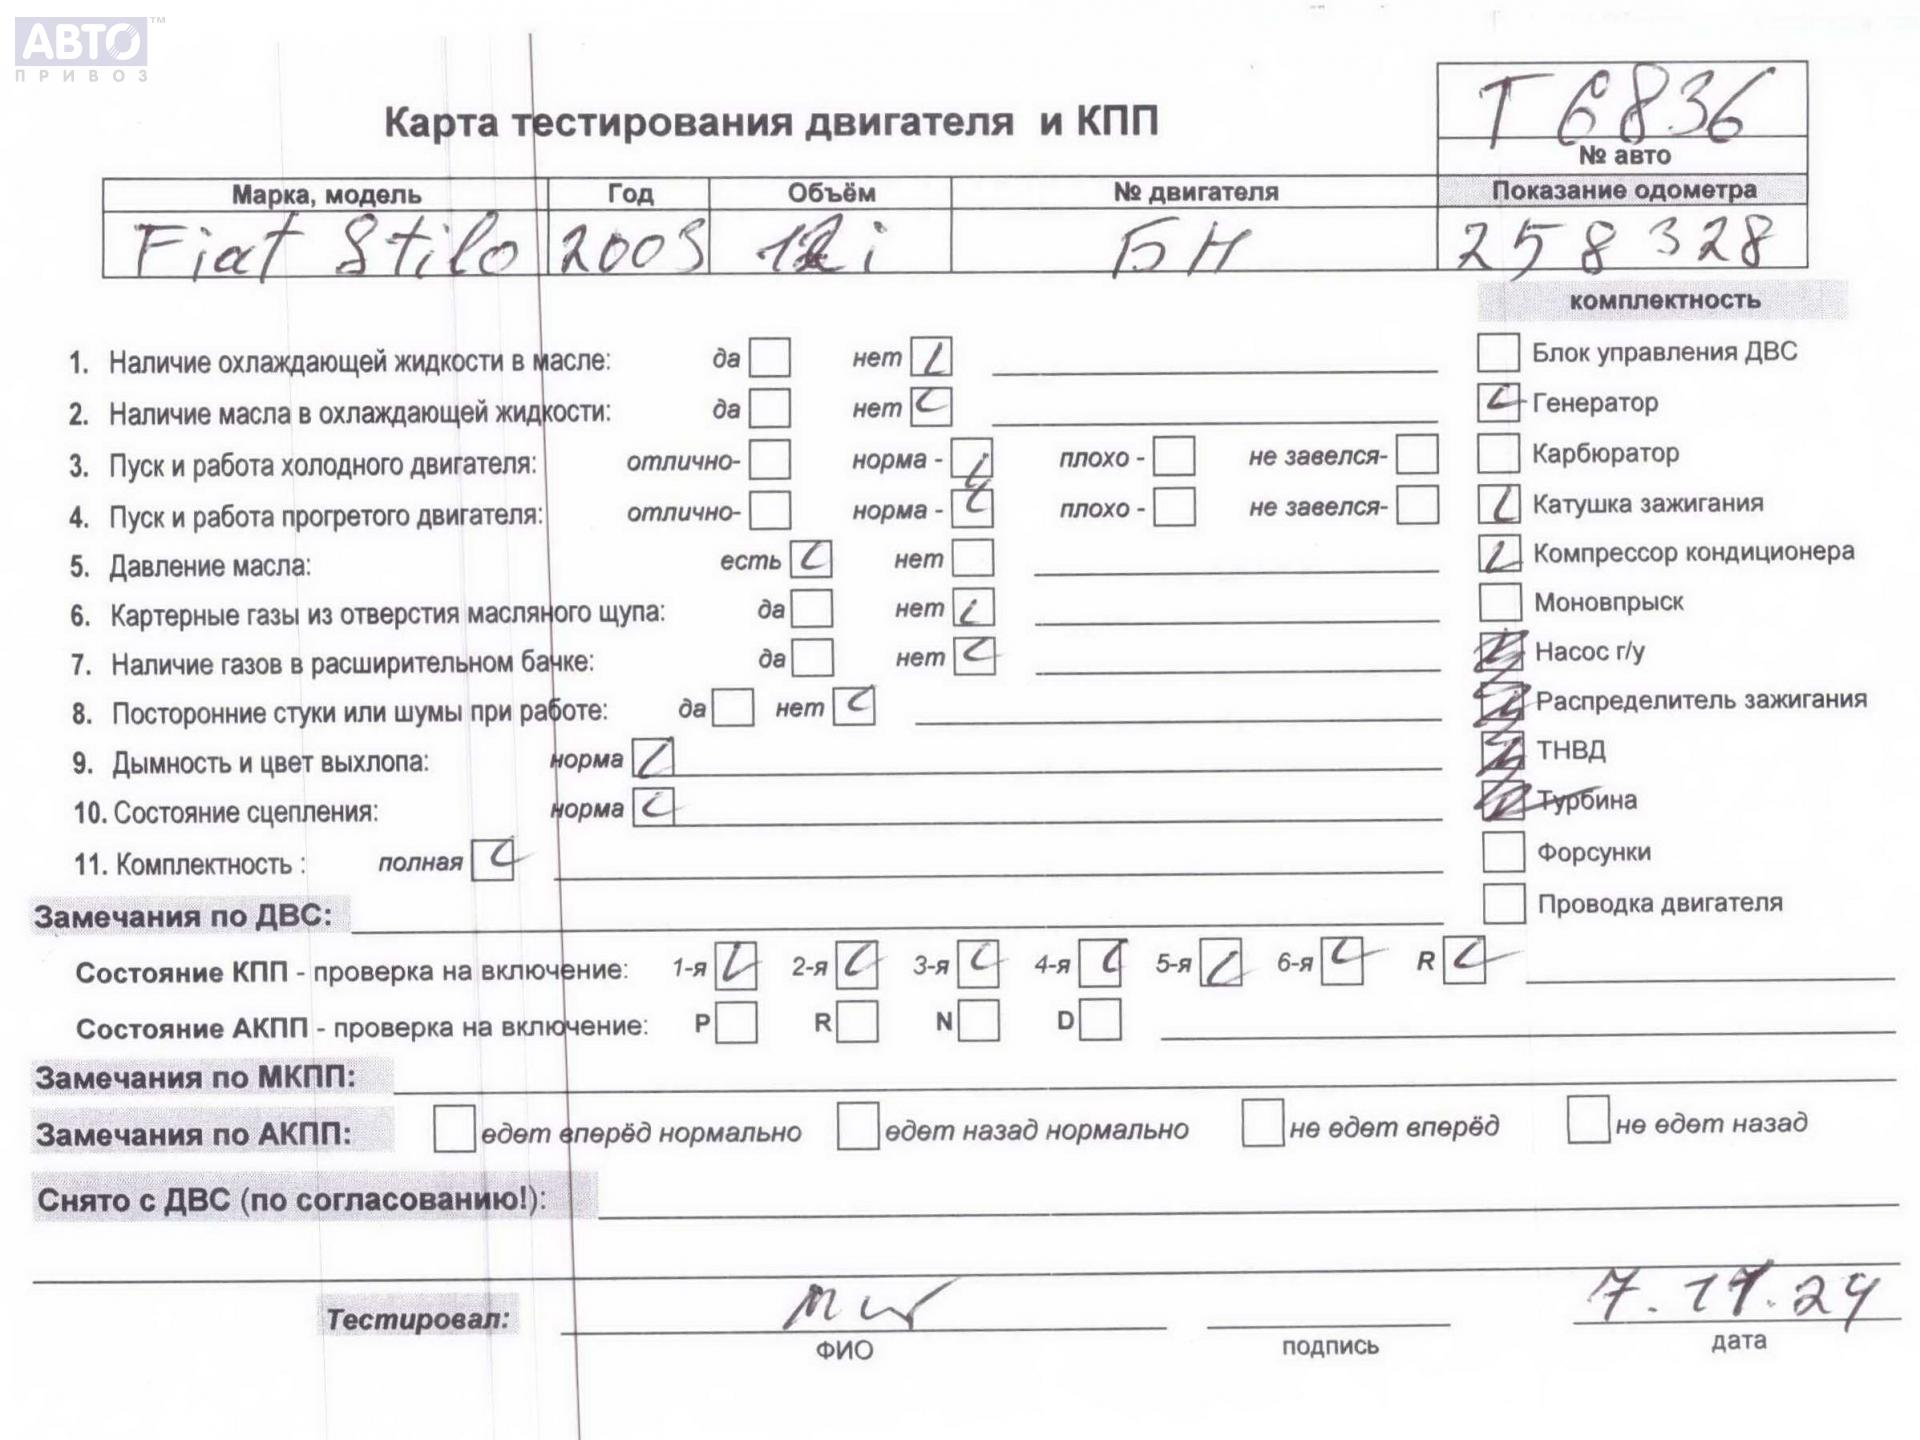 АВТО™
ПРИВОЗ
Т 6836
Карта тестирования двигателя и КПП
№ авто
Марка, модель Год Объём № двигателя Показание одометра
Fiat Stilo 2003 БН 258328
комплектность
1. Наличие охлаждающей жидкости в масле: да нет
Блок управления ДВС
2. Наличие масла в охлаждающей жидкости: да нет
Генератор
3. Пуск и работа холодного двигателя: отлично- норма - плохо - не завелся-
Карбюратор
4. Пуск и работа прогретого двигателя: отлично- норма - плохо - не завелся-
Катушка зажигания
5. Давление масла: есть нет
Компрессор кондиционера
6. Картерные газы из отверстия масляного щупа: да нет
Моновпрыск
7. Наличие газов в расширительном бачке: да нет
Насос г/у
8. Посторонние стуки или шумы при работе: да нет
Распределитель зажигания
9. Дымность и цвет выхлопа: норма
ТНВД
10. Состояние сцепления: норма
Турбина
11. Комплектность : полная
Форсунки
Замечания по ДВС:
Проводка двигателя
Состояние КПП - проверка на включение: 1-я 2-я 3-я 4-я 5-я 6-я R
Состояние АКПП - проверка на включение: P R N D
Замечания по МКПП:
Замечания по АКПП: едет вперёд нормально едет назад нормально не едет вперёд не едет назад
Снято с ДВС (по согласованию!):
Тестировал: 7.11.24
ФИО подпись дата